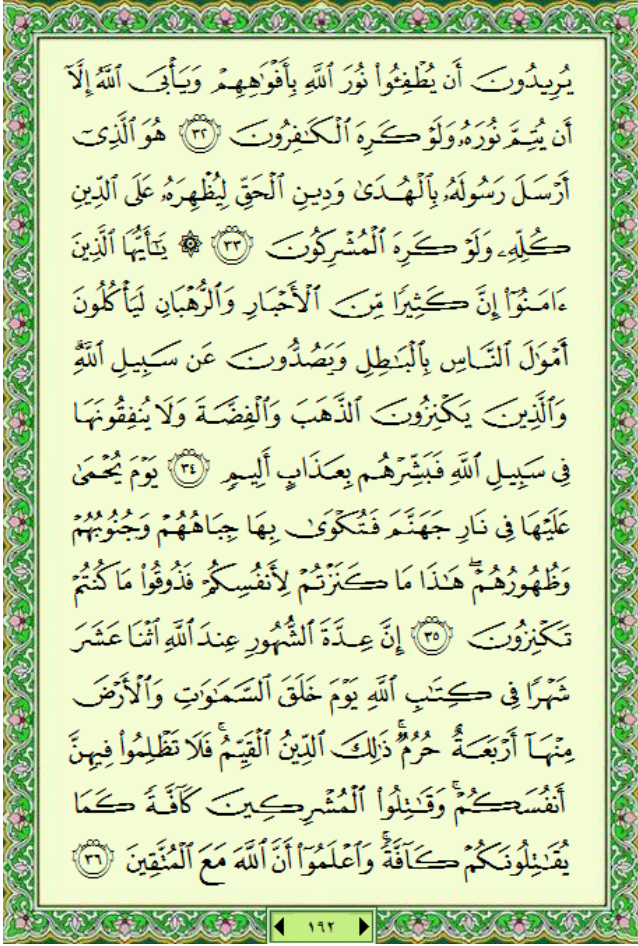 يُرِيدُونَ أَن يُطْفِـُٔوا۟ نُورَ ٱللَّهِ بِأَفْوَٰهِهِمْ وَيَأْبَى ٱللَّهُ إِلَّآ
أَن يُتِمَّ نُورَهُۥ وَلَوْ كَرِهَ ٱلْكَـٰفِرُونَ ٣٢ هُوَ ٱلَّذِىٓ
أَرْسَلَ رَسُولَهُۥ بِٱلْهُدَىٰ وَدِينِ ٱلْحَقِّ لِيُظْهِرَهُۥ عَلَى ٱلدِّينِ
كُلِّهِۦ وَلَوْ كَرِهَ ٱلْمُشْرِكُونَ ٣٣ ۞ يَـٰٓأَيُّهَا ٱلَّذِينَ
ءَامَنُوٓا۟ إِنَّ كَثِيرًا مِّنَ ٱلْأَحْبَارِ وَٱلرُّهْبَانِ لَيَأْكُلُونَ
أَمْوَٰلَ ٱلنَّاسِ بِٱلْبَـٰطِلِ وَيَصُدُّونَ عَن سَبِيلِ ٱللَّهِ ۗ
وَٱلَّذِينَ يَكْنِزُونَ ٱلذَّهَبَ وَٱلْفِضَّةَ وَلَا يُنفِقُونَهَا
فِى سَبِيلِ ٱللَّهِ فَبَشِّرْهُم بِعَذَابٍ أَلِيمٍ ٣٤ يَوْمَ يُحْمَىٰ
عَلَيْهَا فِى نَارِ جَهَنَّمَ فَتُكْوَىٰ بِهَا جِبَاهُهُمْ وَجُنُوبُهُمْ
وَظُهُورُهُمْ ۖ هَـٰذَا مَا كَنَزْتُمْ لِأَنفُسِكُمْ فَذُوقُوا۟ مَا كُنتُمْ
تَكْنِزُونَ ٣٥ إِنَّ عِدَّةَ ٱلشُّهُورِ عِندَ ٱللَّهِ ٱثْنَا عَشَرَ
شَهْرًا فِى كِتَـٰبِ ٱللَّهِ يَوْمَ خَلَقَ ٱلسَّمَـٰوَٰتِ وَٱلْأَرْضَ
مِنْهَآ أَرْبَعَةٌ حُرُمٌ ۚ ذَٰلِكَ ٱلدِّينُ ٱلْقَيِّمُ ۚ فَلَا تَظْلِمُوا۟ فِيهِنَّ
أَنفُسَكُمْ ۚ وَقَـٰتِلُوا۟ ٱلْمُشْرِكِينَ كَآفَّةً كَمَا
يُقَـٰتِلُونَكُمْ كَآفَّةً ۚ وَٱعْلَمُوٓا۟ أَنَّ ٱللَّهَ مَعَ ٱلْمُتَّقِينَ ٣٦
١٩٢